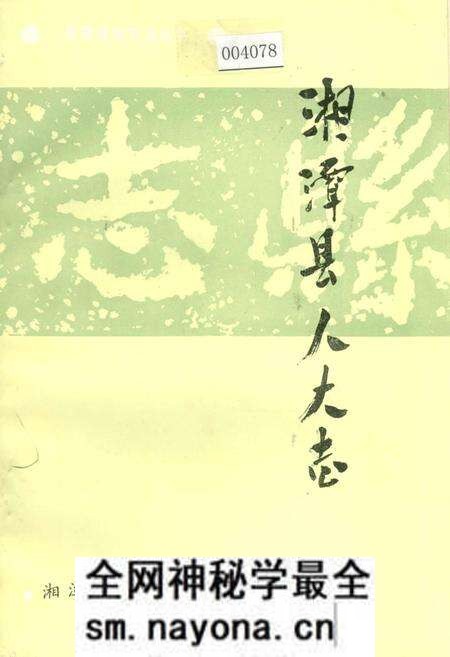 004078
志
縣
湘潭县人大志
湘
全网神秘学最全
sm.nayona.cn